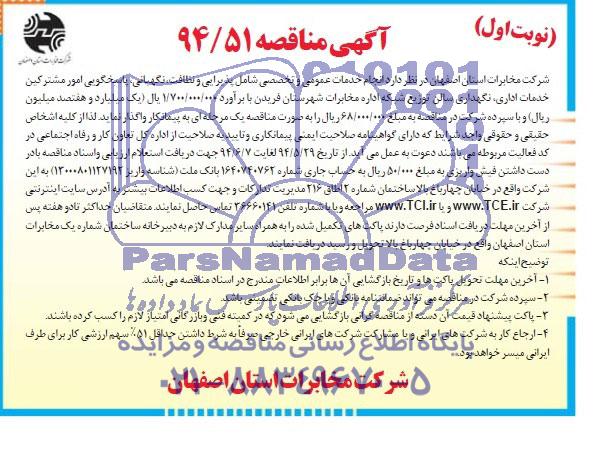 (نوبت اول)
آگهی مناقصه ۹۴/۵۱
شرکت مخابرات استان اصفهان
شرکت مخابرات استان اصفهان در نظر دارد انجام خدمات عمومی و تخصصی شامل پذیرایی و نظافت، نگهبانی، پاسخگویی امور مشترکین
خدمات اداری، نگهداری سالن توزیع شبکه اداره مخابرات شهرستان فریدن با برآورد ۱/۷۰۰/۰۰۰/۰۰۰ ریال (یک میلیارد و هفتصد میلیون
ریال) و با سپرده شرکت در مناقصه به مبلغ ۶۸/۰۰۰/۰۰۰ ریال را به صورت مناقصه یک مرحله ای به پیمانکار واگذار نماید. لذا از کلیه اشخاص
حقیقی و حقوقی واجد شرایط که دارای گواهینامه صلاحیت ایمنی پیمانکاری و تایید صلاحیت از اداره کل تعاون کار و رفاه اجتماعی در
کد فعالیت مربوطه می باشند دعوت به عمل می آید. از تاریخ ۹۴/۵/۲۹ لغایت ۹۴/۶/۷ جهت دریافت استعلام ارزیابی واسناد مناقصه بادر
دست داشتن فیش واریزی به مبلغ ۵۰/۰۰۰ ریال به حساب جاری شماره ۱۶۴۰۷۴۰۷۶۲ بانک ملت (شناسه واریز ۱۲۰۰۰۸۰۱۱۲۷۱۹۲) به این
شرکت واقع در خیابان چهارباغ بالا ساختمان شماره ۲ اطاق ۲۱۶ مدیریت تدارکات و جهت کسب اطلاعات بیشتر به آدرس سایت اینترنتی
شرکت www.TCE.ir و یا www.TCI.ir مراجعه ویا با شماره تلفن ۳۶۶۶۰۱۴۱ تماس حاصل نمایند. متقاضیان حداکثر تا دو هفته پس
از آخرین مهلت دریافت اسناد فرصت دارند پاکت های تکمیل شده را به همراه سایر مدارک لازم به دبیرخانه ساختمان شماره یک مخابرات
استان اصفهان واقع در خیابان چهارباغ بالا تحویل و رسید دریافت نمایند.
توضیح اینکه
۱- آخرین مهلت تحویل پاکت ها و تاریخ بازگشایی آن ها برابر اطلاعات مندرج در اسناد مناقصه می باشد.
۲- سپرده شرکت در مناقصه می تواند ضمانتنامه بانکی ویا چک بانکی تضمینی باشد.
۳- پاکت پیشنهاد قیمت آن دسته از مناقصه گرانی بازگشایی می شود که در کمیته فنی وبازرگانی امتیاز لازم را کسب کرده باشند.
۴- ارجاع کار به شرکت های ایرانی و یا مشارکت شرکت های ایرانی خارجی صرفاً به شرط داشتن حداقل ۵۱٪ سهم ارزشی کار برای طرف
ایرانی میسر خواهد بود.
شرکت مخابرات استان اصفهان
ParsNamadData
پایگاه اطلاع رسانی مناقصه و مزایده
۰۲۱-۸۸۳۴۹۶۷۰-۵